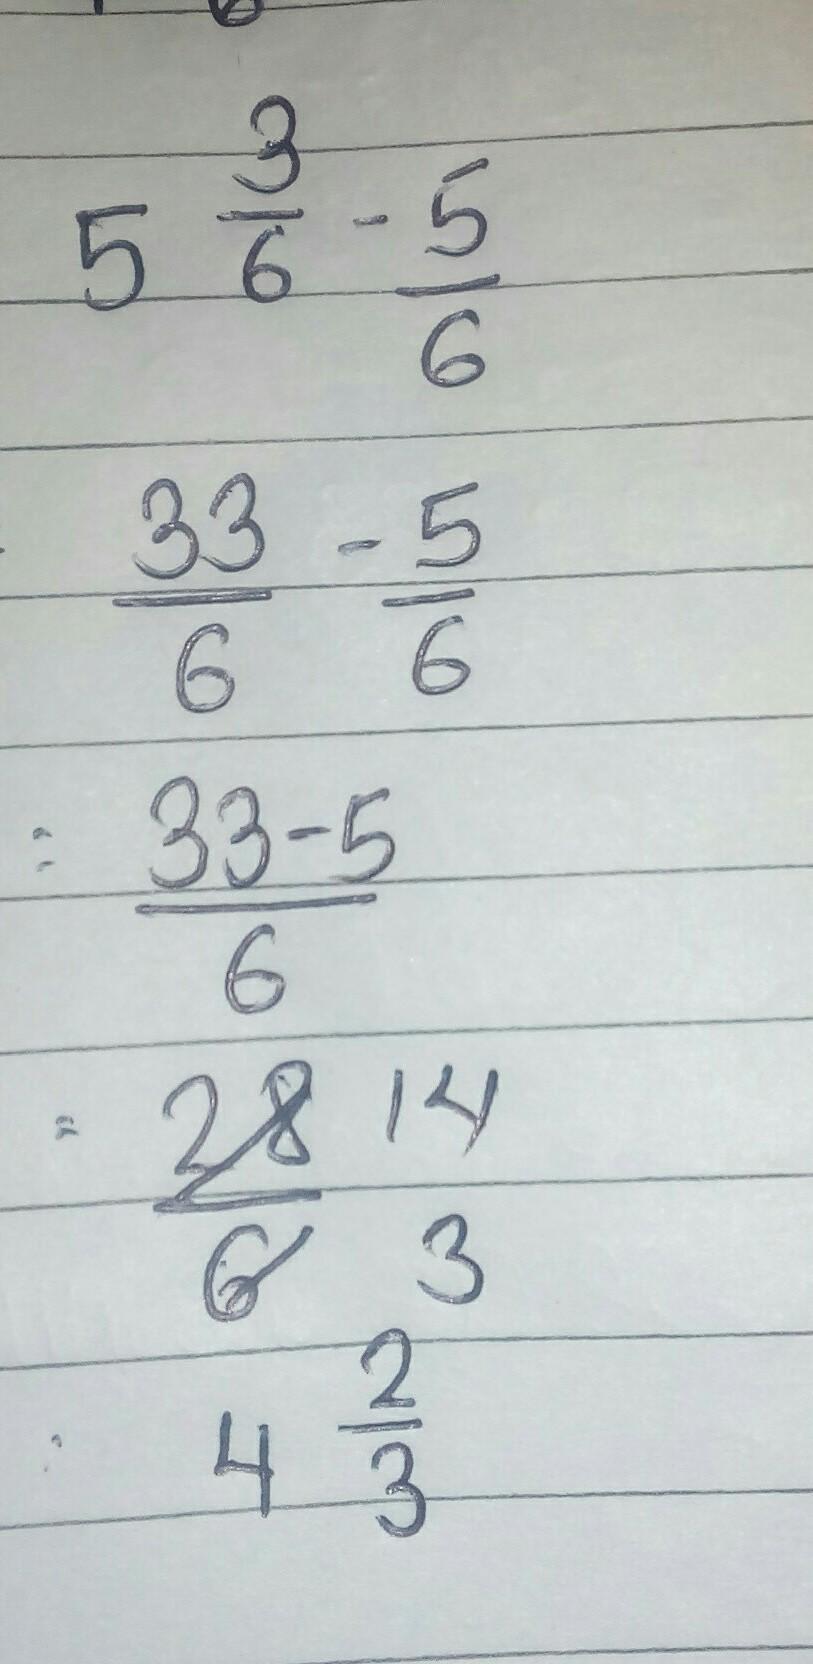 5 3/6 - 5/6
33/6 - 5/6
= 33-5/6
= 28/6 14/3
: 4 2/3